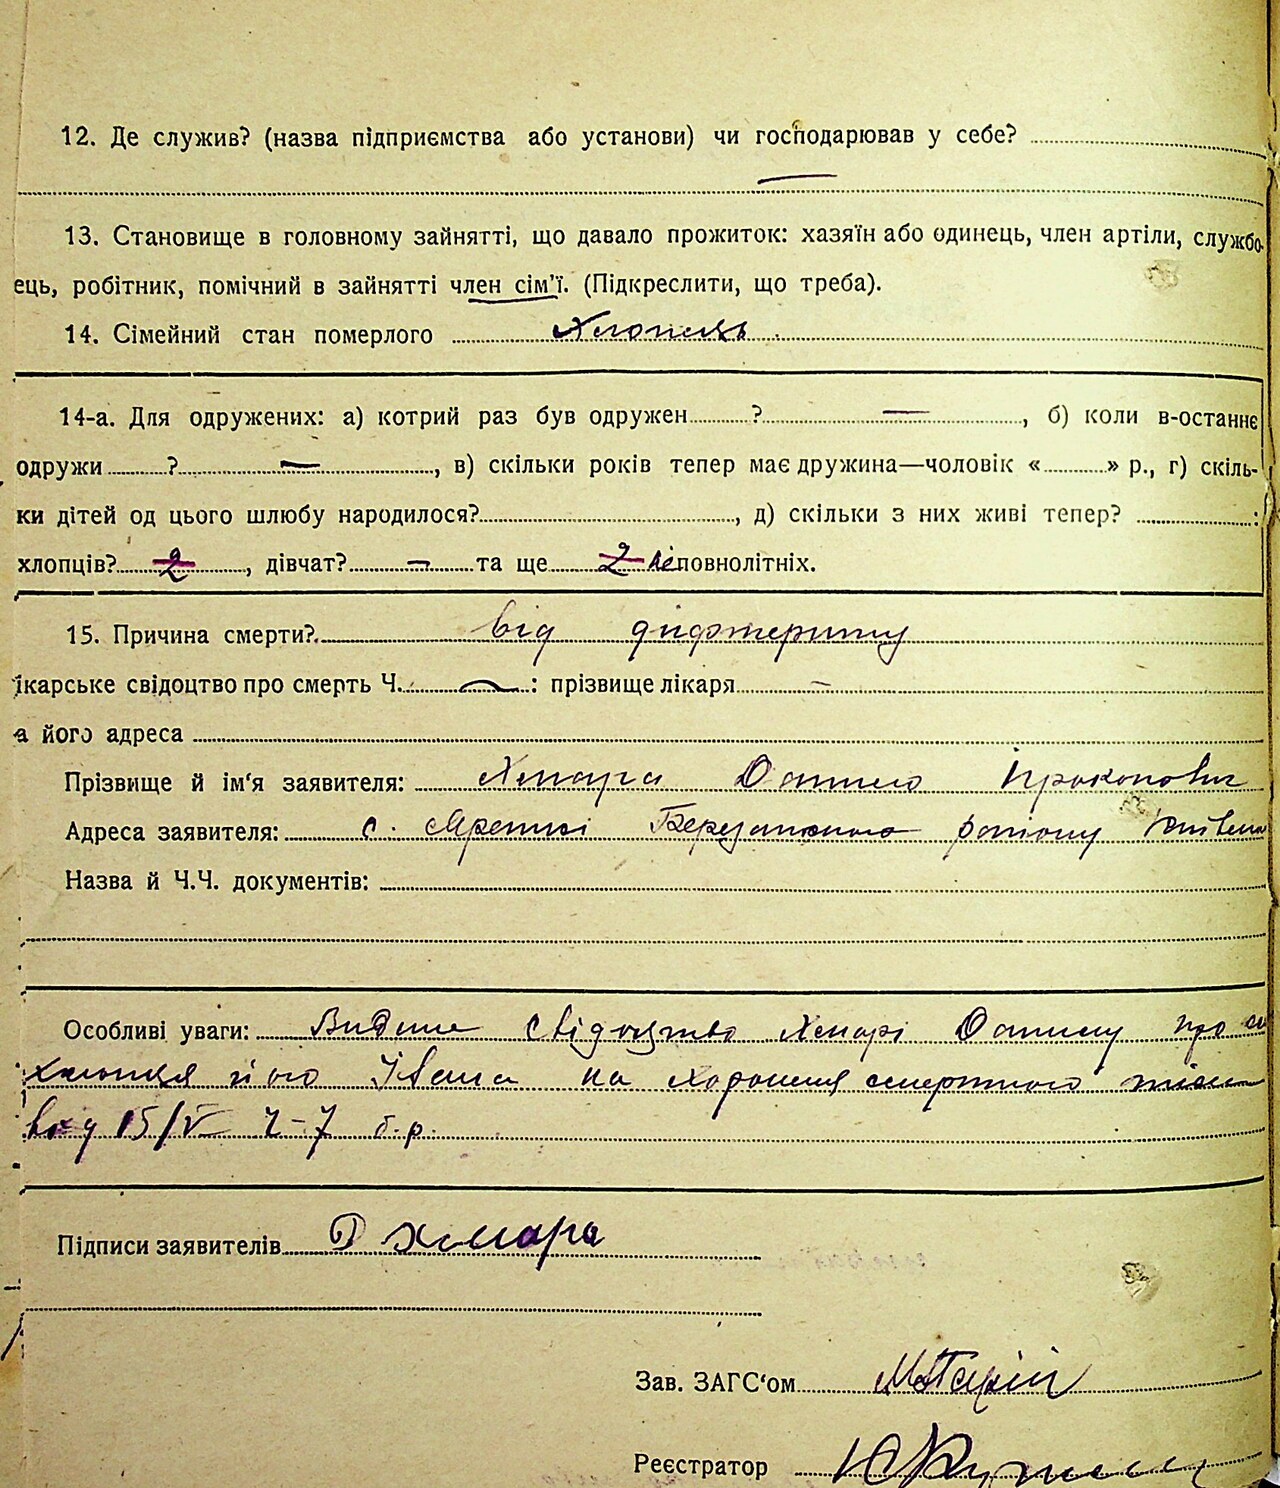 12. Де служив? (назва підприємства або установи) чи господарював у себе?
13. Становище в головному зайнятті, що давало прожиток: хазяїн або одинець, член артіли, службо-
ець, робітник, помічний в зайнятті член сім'ї. (Підкреслити, що треба).
14. Сімейний стан померлого Хлопець
14-а. Для одружених: а) котрий раз був одружен ? —, б) коли в-останнє
одружи ? —, в) скільки років тепер має дружина—чоловік « » р., г) скіль-
ки дітей од цього шлюбу народилося? , д) скільки з них живі тепер? :
хлопців? 2, дівчат? — та ще 2 неповнолітніх.
15. Причина смерти? від дифтериту
ікарське свідоцтво про смерть Ч. — : прізвище лікаря —
а його адреса
Прізвище й ім'я заявителя: Хмара Данило Прокопович
Адреса заявителя: с. Ярешкі Березанського району
Назва й Ч.Ч. документів:
Особливі уваги: Видане свідоцтво Хмарі Данилу про
хлопця його Івана на хоронення смертного тіла
від 15/V Ч-7 б.р.
Підписи заявителів Д Хмара
Зав. ЗАГС'ом
Реєстратор